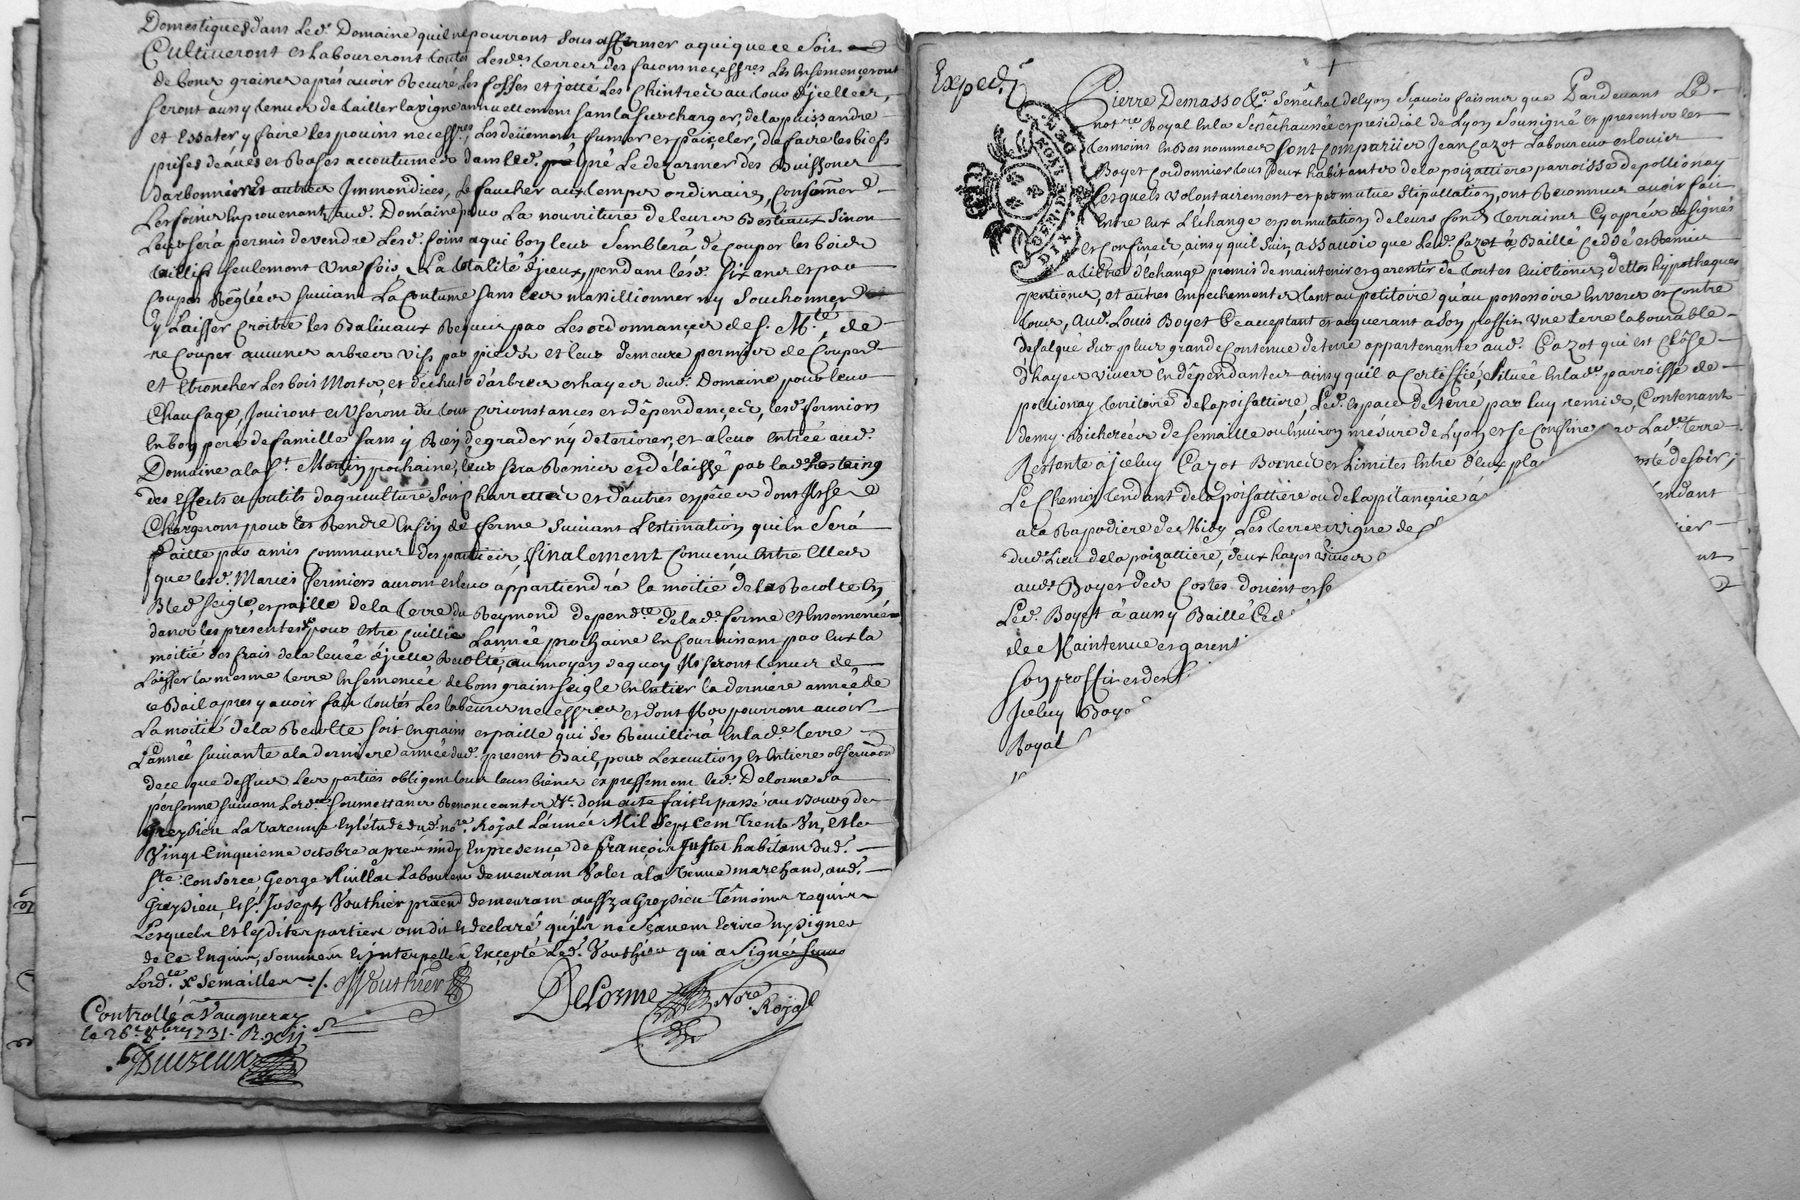 Domestiques dans Led. Domaine quil ne pourront sous affermer a qui que ce soit
Cultiveront et Laboureront toutes Lesdes terres des facons necessres Les Ensemenceront
de bons graines aprés avoir Recuré Les fosses et jetté Les Chintres au tour d'jcelles,
seront aussy tenus de tailler la vigne annuellement sans la surcharger, de la puissandre
et Essater, y faire Les provins necessres, Les deüement fumer et Paisseler, de faire Les biefs
prises deaües et Rases accoutumées dans Led. pré Le dezarmer des Buissons
darbonnieres et autres Jmmondices, Le faucher aux temps ordinaires, Consomér
Les foins En provenant aud. Domaine pour La nourriture de leurs Bestiaux Sinon
Leur sera permis de vendre Lesd. foins a qui bon leur Semblera de couper les bois
taillis seulement Une fois La totalité d'jceux, pendant lesd. six ans et par
coupes Réglées suivant La coutume sans les
y Laisser Croitre les Baliveaux Requis par Les ordonnances de S. Mté., de
ne Couper aucuns arbres vifs par pieds et leur demeure permis de Couper
et Etroncher Les bois Morts, et de chuts d'arbres et hayes dud. Domaine pour leur
Chaufage, Joüiront et Useront du tout circonstances et dépendances, lesd. fermiers
En bon pere de famille sans y Rien degrader n'y deteriorer, et a leur entrée aud.
Domaine a la St. Martin prochaine, leur sera Remis et délaissé par lade. hosteing
des Effects et outils dagriculture soit Charrettes et d'autres espéces dont Jls se
Chargeront pour les Rendre En fin de ferme suivant L'estimation qui En sera
faitte par amis communs des parties, finalement Convenu Entre Elles
que lesd. Mariés fermiers auront et leur appartiendra la moitié de la Recolte En
Bled seigle, et paille de la terre du Reymond dependte de lade. ferme Et Ensemencée
dans les presentes pour estre Cuillie L'année prochaine En fournissant par Eux la
moitié des frais de la levée d'jcelle Recolte, au moyen de quoy Jls seront tenus de
Laisser la mesme terre Ensemencée de bons grains seigle En Entier la derniere année de
ce Bail apres y avoir fait toutes Les labeures necessres et dont Jls pourront avoir
La moitié de la Recolte soit En grains et paille qui se Recuillira En lade. terre
L'année suivante a la derniere année dud. present Bail, pour L'execution Et Entiere observaon
de ce que dessus Les parties obligent tous leurs biens expressement led. Delorme sa
personne suivant Lordce. soumettants Renonceants &c. dont acte fait Et passé au Bourg de
Grezieu La Varenne En l'étude dud. nore. Royal L'année Mil Sept Cent Trente Un, Et le
Vingt Cinquieme octobre aprés midy En presence de françois Juste habitant dud.
Ste. Consorce George Ruillat Laboureur demeurant Valet a la Tenue marchand, aud.
Grezieu, Et Sr. Joseph Vouthier pratén demeurant aussy a Grezieu Témoins requis
Lesquels Et lesdites parties ont dit Et declaré qu'jls ne Sçavent Ecrire ny signer
de ce Enquis, sommés Et jnterpellés, Excepté Led. Vouthier qui a Signé suivt
Lordce. x semailles ./. JVouthier
Delorme Nore Royal
Controllé á Vaugneray
le 26e. 8bre 1731. R. xij s

Expedié
DIX DENIERS
Pierre Demasso &a. Senéchal de Lyon Sçavoir faisons que Pardevant Le
notre. Royal En la Senéchaussée et presidial de Lyon Sousigné et presents les
temoins En Bas nommés sont Comparües Jean Cazot Laboureur et Louis
Boyet Cordonnier tous deux habitants de la poizattiere parroisse de pollionay
Lesquels volontairement et par mutue Stipullation, ont Reconnus avoir fait
Entre eux L'échange et permutation de leurs fonds terraines Cy aprés designés
et Confinés, ainsy quil Suit, assavoir que Led. Cazot á Baillé Ceddé et Remis
a titre d'échange promis de maintenir et garentir de toutes Euictions, dettes hypotheques
pentions, et autres empechements tant au petitoire qu'au possessoire Envers et Contre
tous, Aud. Louis Boyet Ce acceptant et acquerant a son proffit Une terre labourable
desalqué sur plus grande Contenue de terre appartenante aud. Cazot qui est Close
d'hayes vives En dépendantes ainsy quil a Certiffié, Située En lade. parroisse de
pollionay territoire de la poisattiere, Led. espace de terre par luy remis, Contenant
demy Bicherées de semaille ou Environ mesure de Lyon et se Confine par Lade. terre
Restente a jceluy Cazot Bornes et Limites Entre deux de soir,
Le Chemin tendant de la poisattiere ou de la pitançerie á
a la Rapodiere de Midy Les terre et vigne de
dud. Lieu de la poizattiere, deux hayes Vives
aud. Boyet des Costes dorient et
Led. Boyet á aussy Baillé Ced
de Maintenue et garent
Son proffit et de
Jceluy Boye
Royal